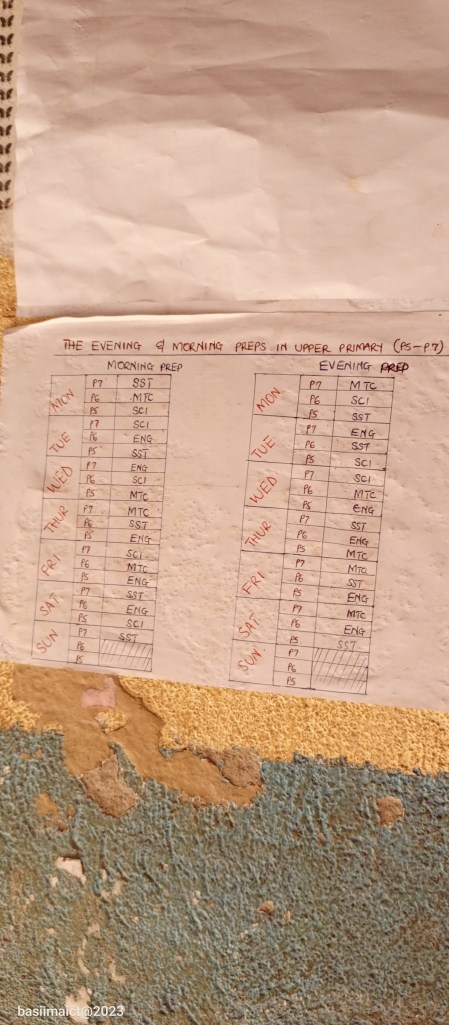 THE EVENING & MORNING PREPS IN UPPER PRIMARY (P5-P7)
MORNING PREP
MON
P7 SST
P6 MTC
P5 SCI
TUE
P7 SCI
P6 ENG
P5 SST
WED
P7 ENG
P6 SCI
P5 MTC
THUR
P7 MTC
P6 SST
P5 ENG
FRI
P7 SCI
P6 MTC
P5 ENG
SAT
P7 SST
P6 ENG
P5 SCI
SUN
P7 SST
P6
P5
EVENING PREP
MON
P7 MTC
P6 SCI
P5 SST
TUE
P7 ENG
P6 SST
P5 SCI
WED
P7 SCI
P6 MTC
P5 ENG
THUR
P7 SST
P6 ENG
P5 MTC
FRI
P7 MTC
P6 SST
P5 ENG
SAT
P7 MTC
P6 ENG
P5 SST
SUN
P7
P6
P5
basiimaict@2023